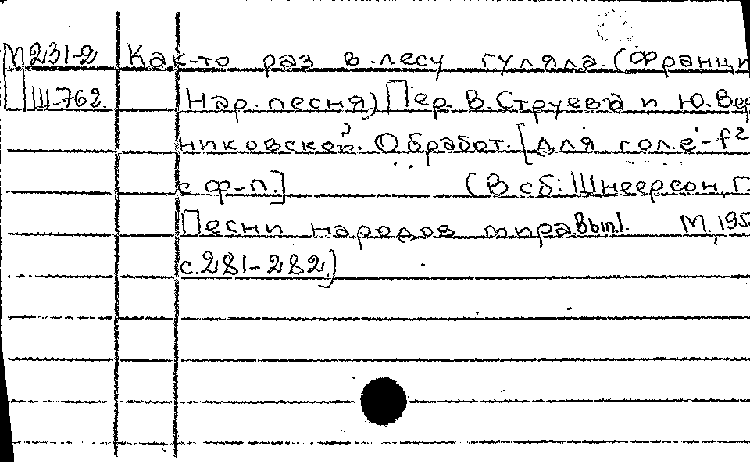 М231-2 Как-то раз в лесу гуляла. (Франци
Ш-762 Нар. песня) Пер. В. Струева и Ю. Вер
никовской. Обработ. [для голе-f²
с ф-п.] (В сб: Шнеерсон, Г.
Песни народов мира Вып1. М, 195
с. 281-282.)